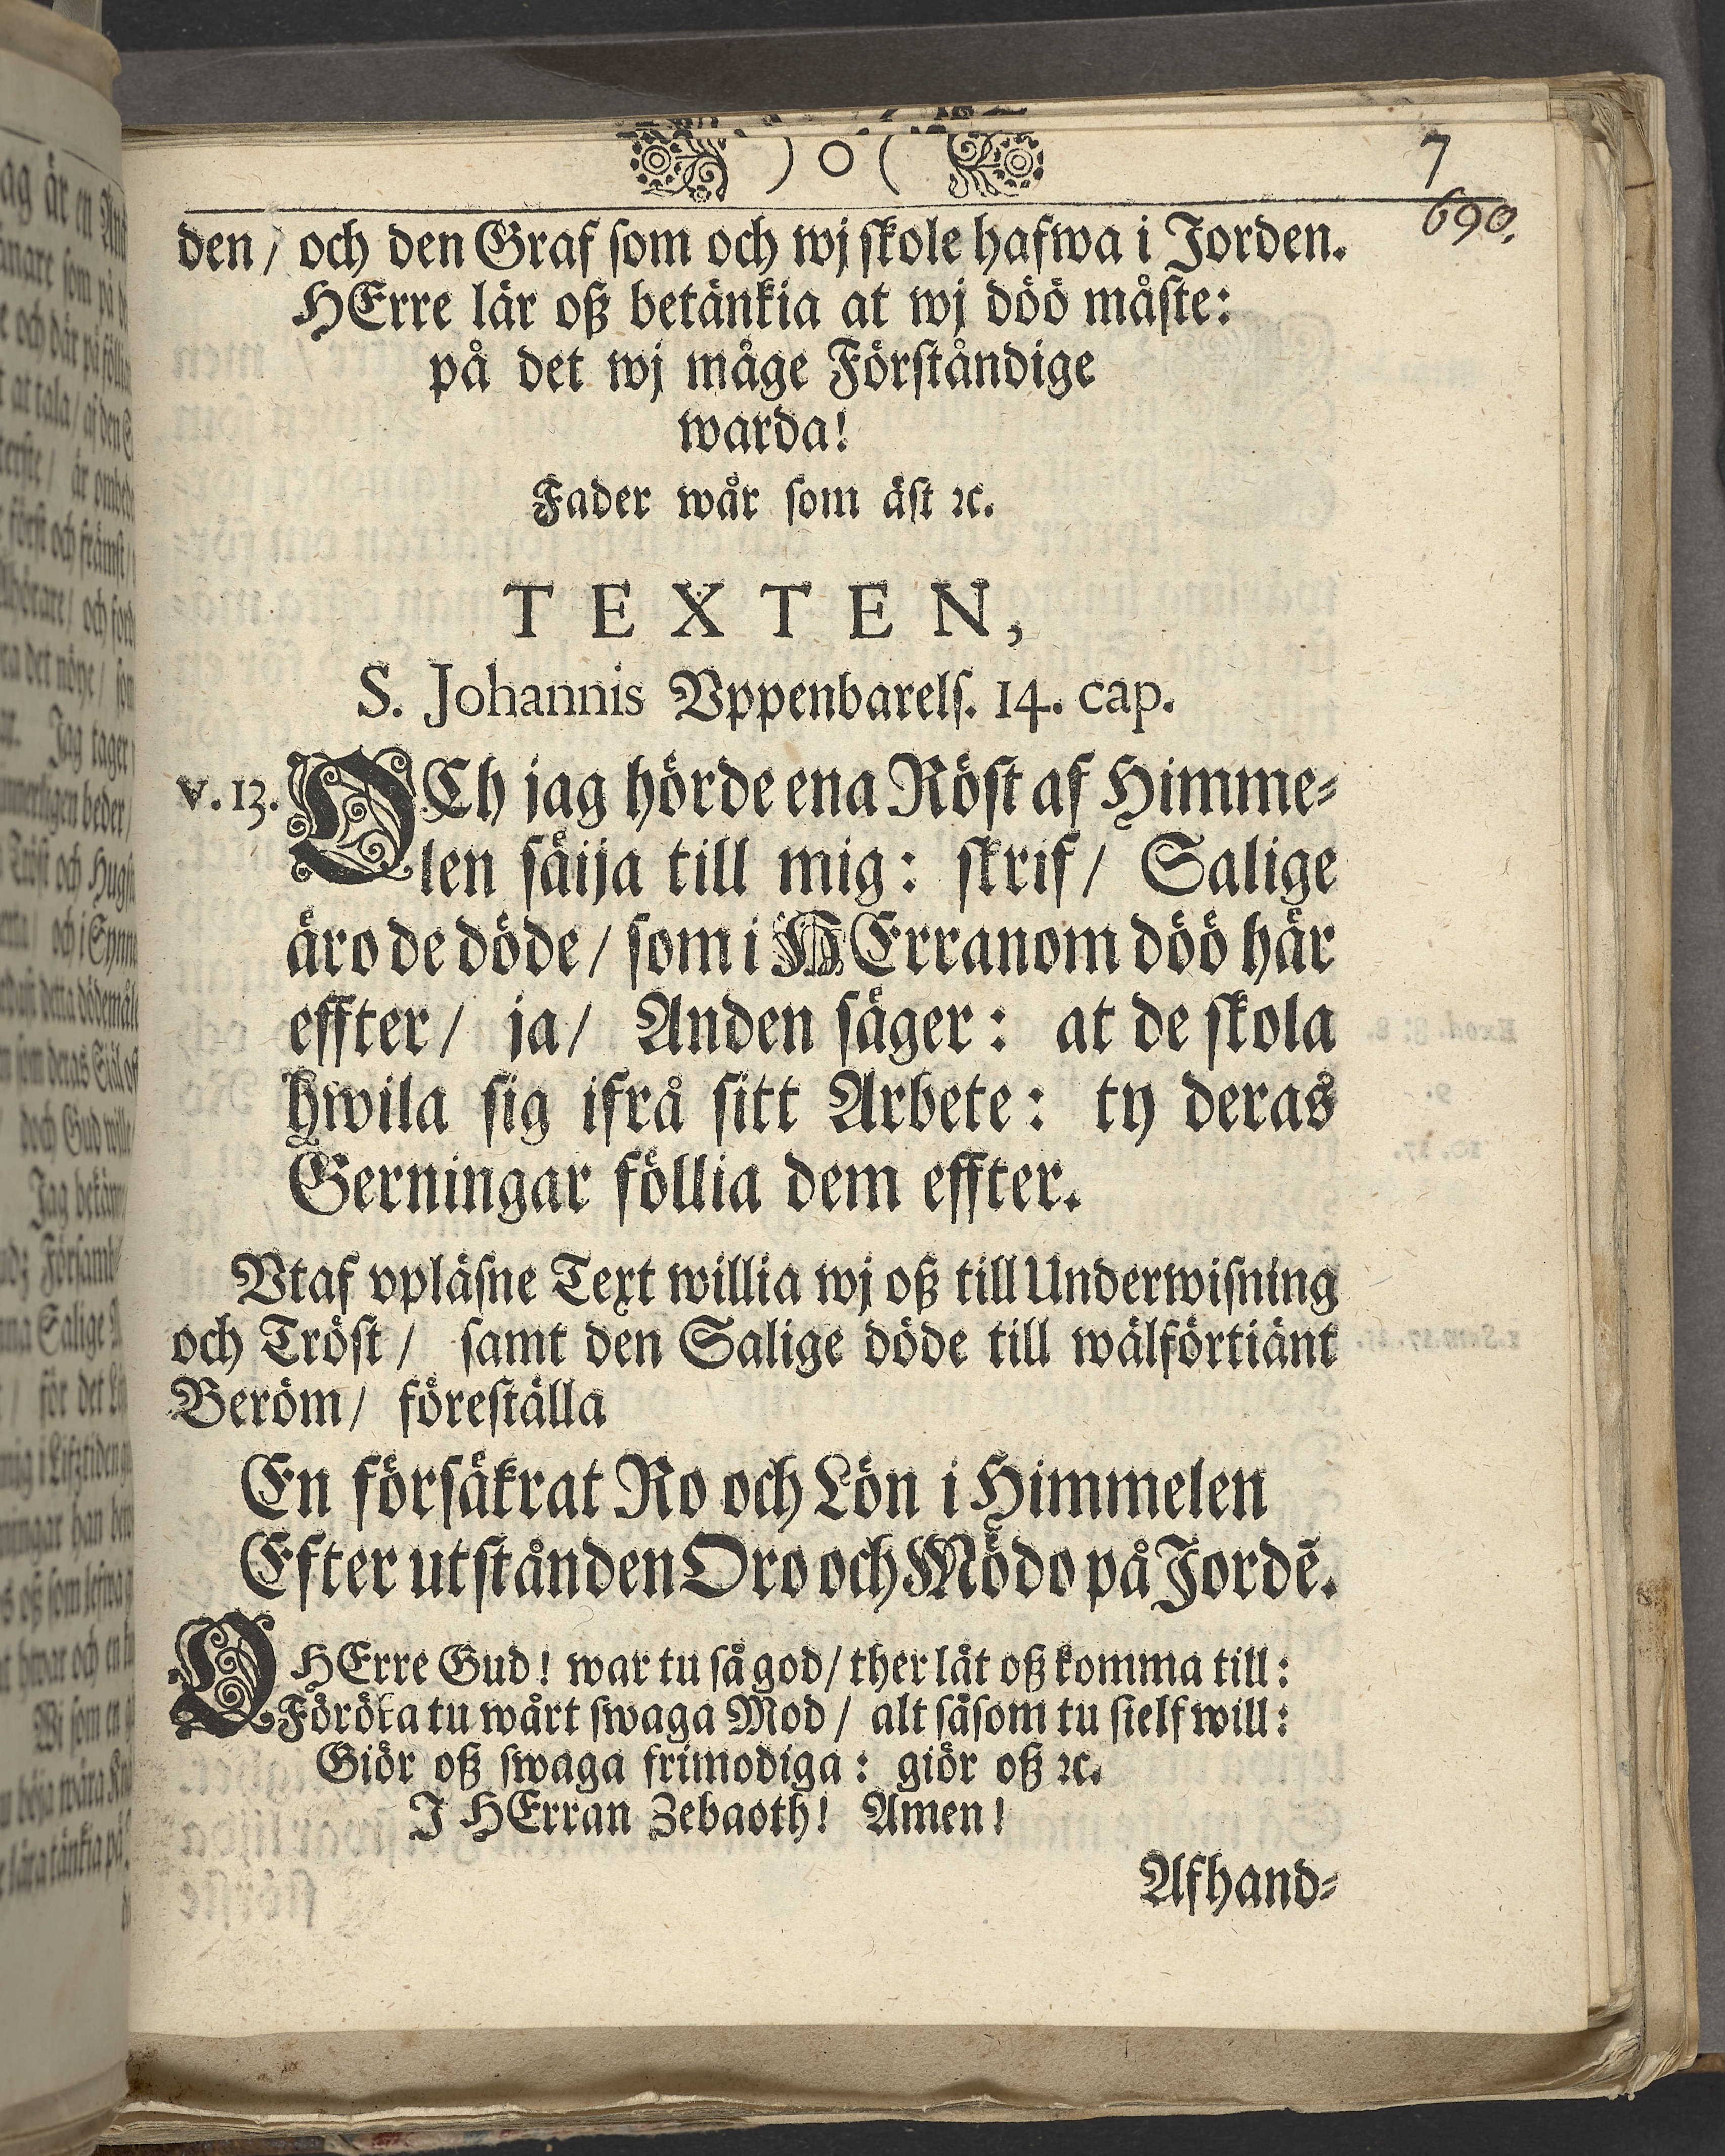 ) o (
7
690.
den / och den Graf som och wj skole hafwa i Jorden.
HErre lär oß betänkia at wj döö måste:
på det wj måge Förståndige
warda!
Fader wår som äst ꝛc.
TEXTEN,
S. Johannis Vppenbarels. 14. cap.
v. 13. OCh jag hörde ena Röst af Himme-
len säija till mig: skrif / Salige
äro de döde / som i HErranom döö här
effter / ja / Anden säger: at de skola
hwila sig ifrå sitt Arbete: ty deras
Gerningar föllia dem effter.
Vtaf vpläsne Text willia wj oß till Underwisning
och Tröst / samt den Salige döde till wälförtiänt
Beröm / föreställa
En försäkrat Ro och Lön i Himmelen
Efter utstånden Oro och Mödo på Jordē.
O HErre Gud! war tu så god / ther låt oß komma till:
Föröka tu wårt swaga Mod / alt såsom tu sielf will:
Giör oß swaga frimodiga: giör oß ꝛc.
J HErran Zebaoth! Amen!
Afhand-